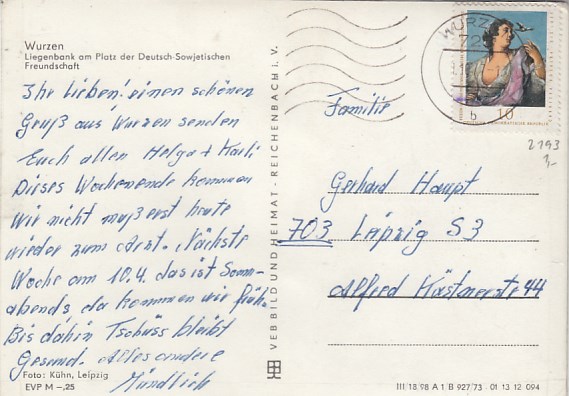 Wurzen
Liegenbank am Platz der Deutsch-Sowjetischen
Freundschaft
Ihr Lieben! einen schönen
Gruß aus Wurzen senden
Euch allen Helga + Karli
Dieses Wochenende kommen
Wir nicht muß erst heute
wieder zum Arzt. Nächste
Woche am 10.4. das ist Sonn-
abends, da kommen wir früh.
Bis dahin Tschüss bleibt
Gesund. Alles andere
Mündlich
Foto: Kühn, Leipzig
EVP M –,25
VEB BILD UND HEIMAT · REICHENBACH i. V.
WURZ
72
b
10
2193
1,-
Familie
Gerhard Haupt
703 Leipzig S3
Alfred Kästnerstr 44
III 18 98 A 1 B 927/73 · 01 13 12 094